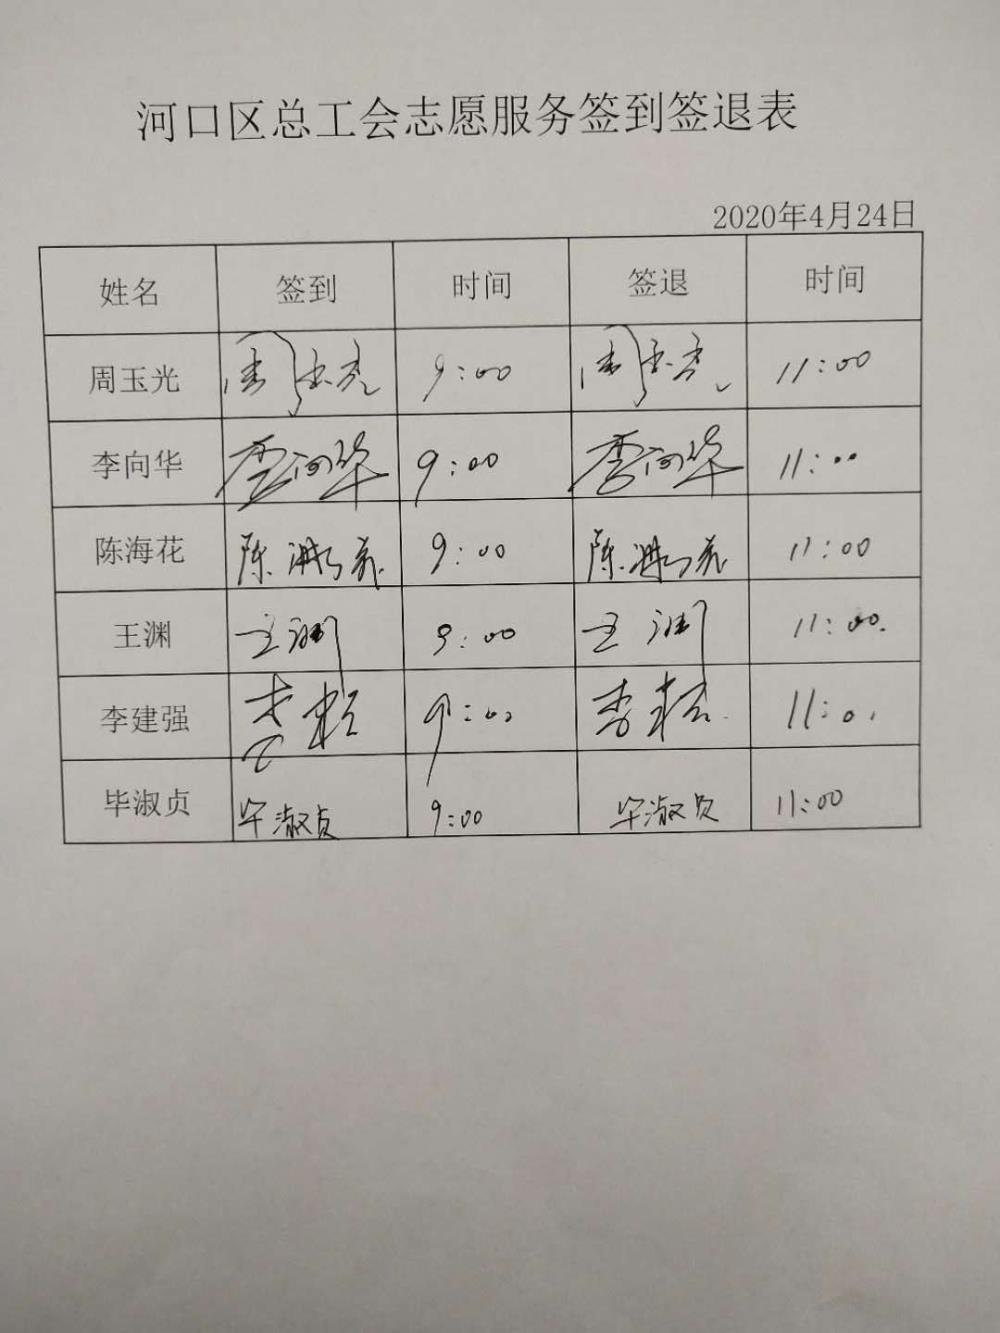 河口区总工会志愿服务签到签退表
2020年4月24日
姓名 签到 时间 签退 时间
周玉光 周玉光 9:00 周玉光 11:00
李向华 李向华 9:00 李向华 11:00
陈海花 陈海花 9:00 陈海花 11:00
王渊 王渊 9:00 王渊 11:00
李建强 李建强 9:00 李建强 11:00
毕淑贞 毕淑贞 9:00 毕淑贞 11:00